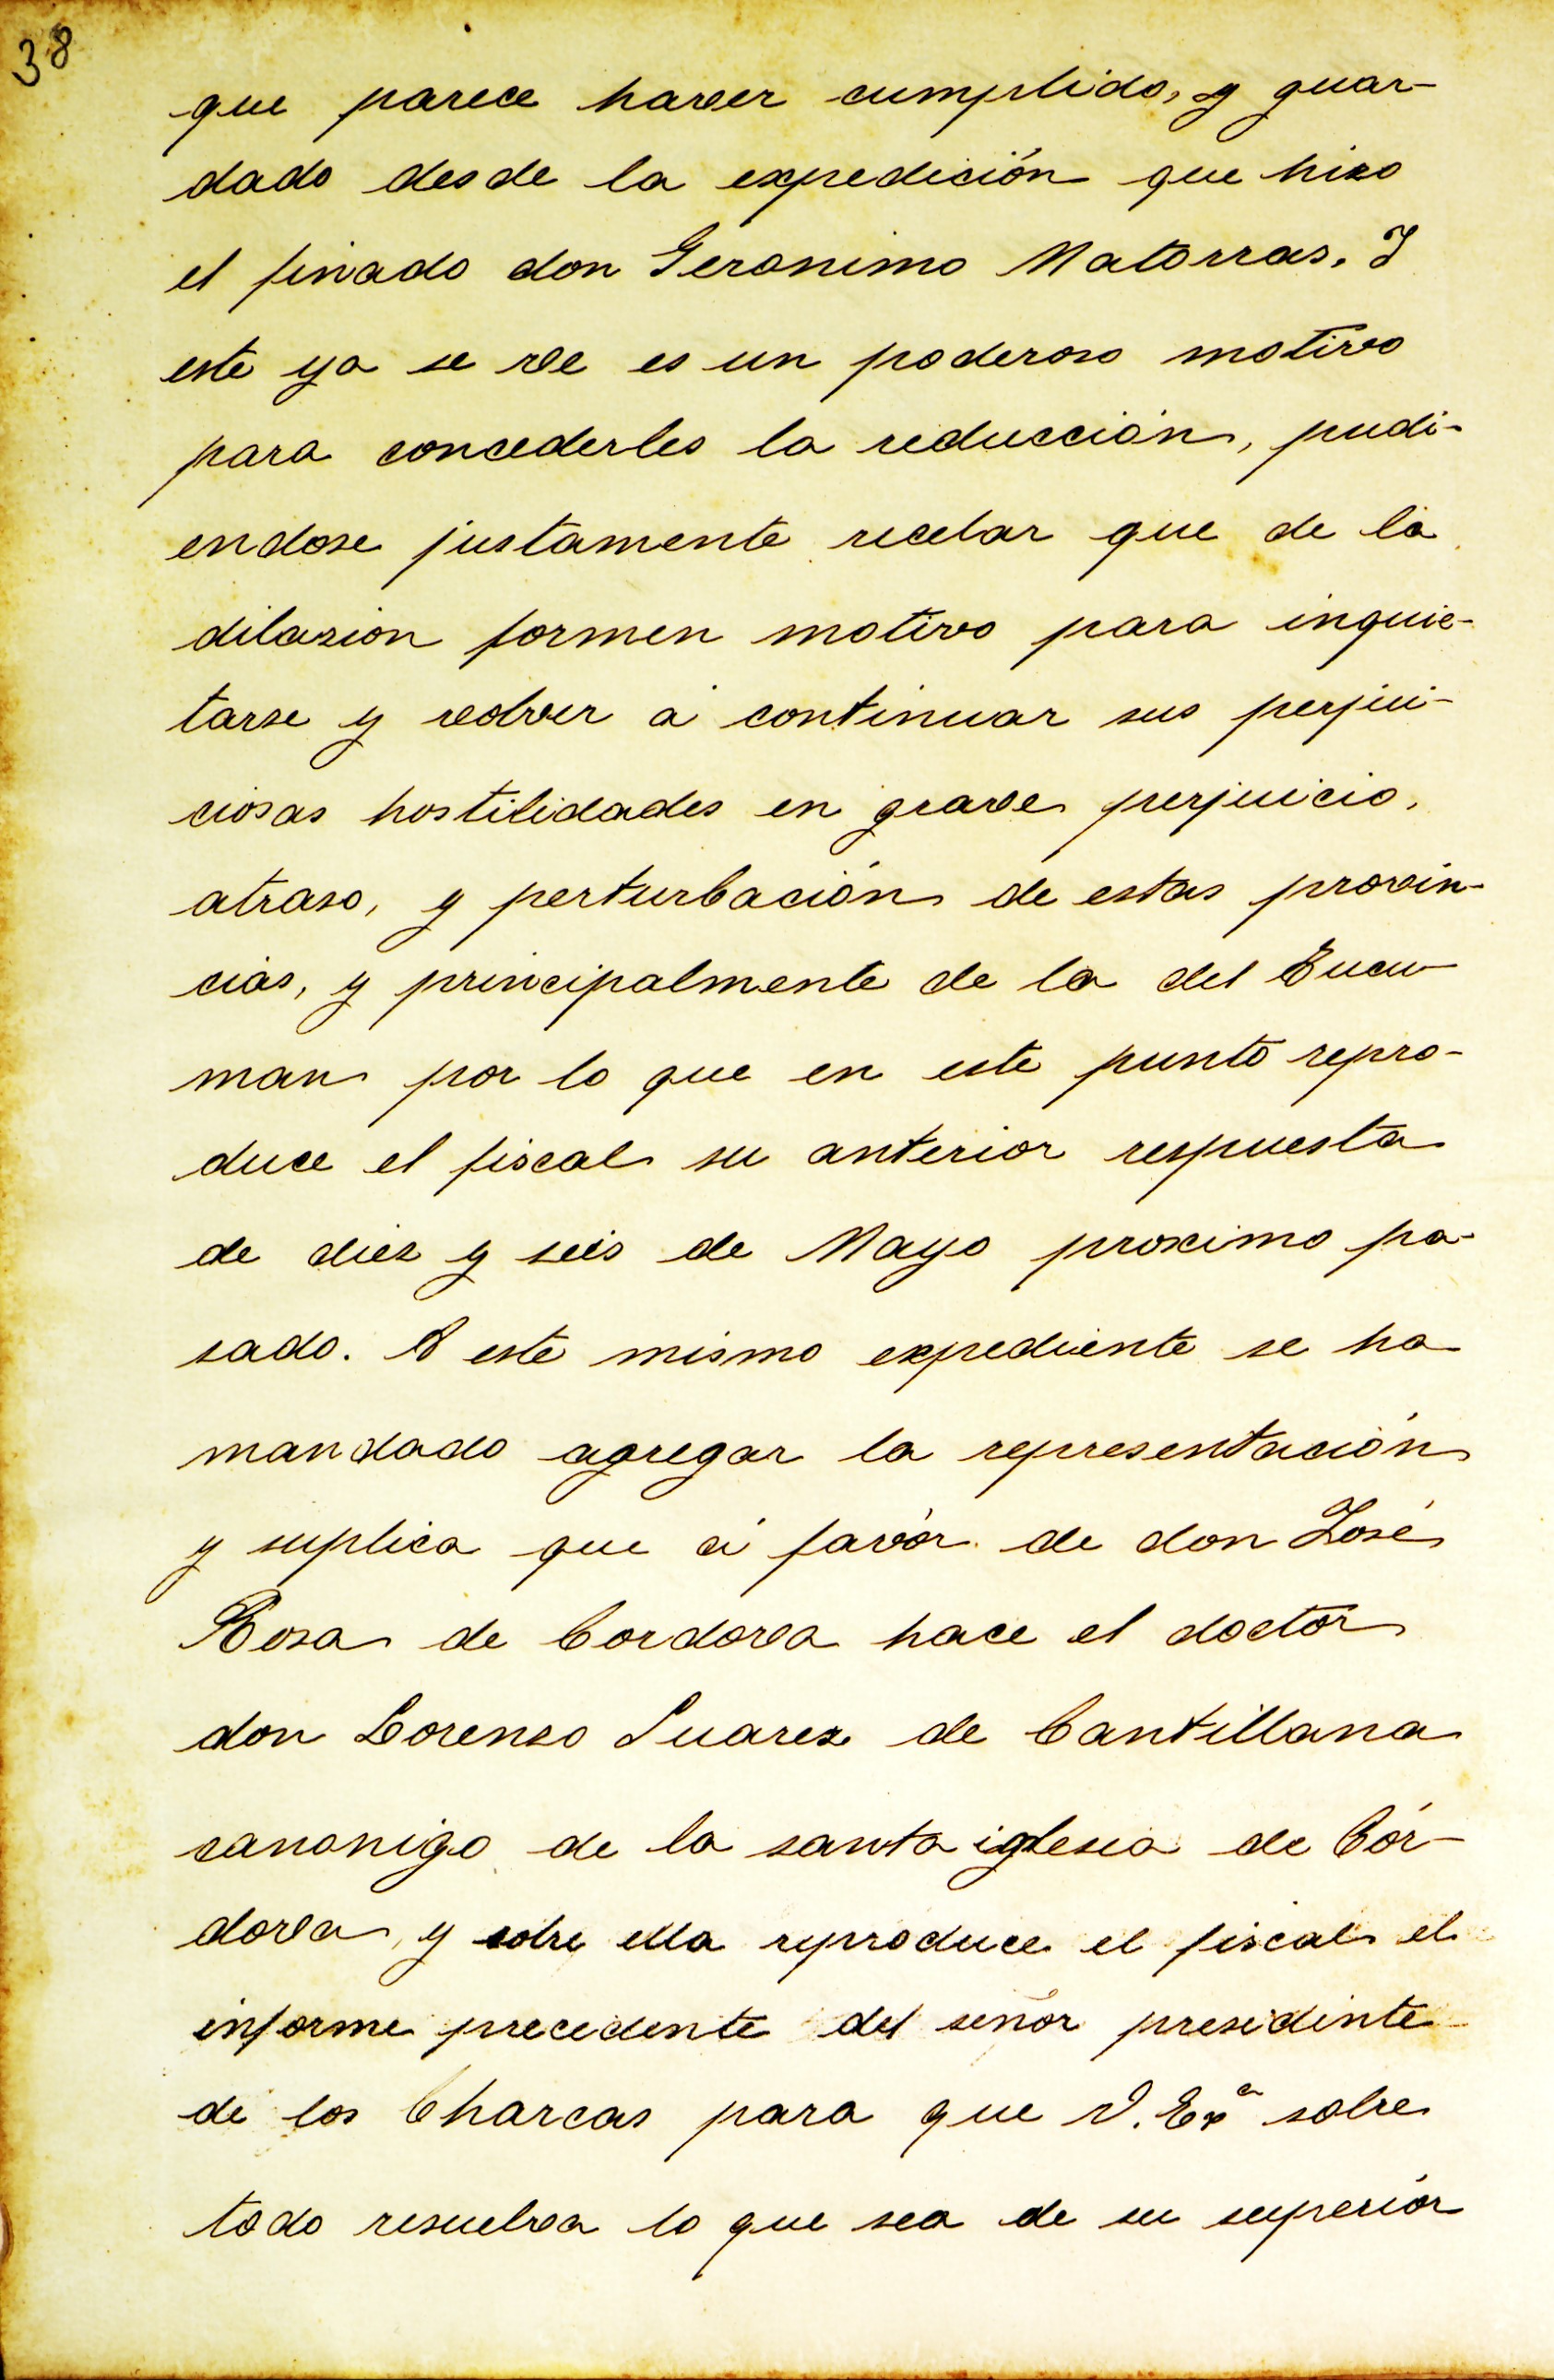 38
que parece haver cumplido, y guar-
dado desde la expedición que hizo
el finado don Geronimo Matorras. I
este ya se ve es un poderoso motivo
para concederles la reducción, pudi-
endose justamente recelar que de la
dilazion formen motivo para inquie-
tarse y volver á continuar sus perjui-
ciosas hostilidades en grave perjuicio,
atraso, y perturbación de estas provin-
cias, y principalmente de la del Tucu-
man por lo que en este punto repro-
duce el fiscal su anterior respuesta
de diez y seis de Mayo proximo pa-
sado. A este mismo expediente se ha
mandado agregar la representación
y suplica que á favór de don José
Rosa de Cordova hace el doctor
don Lorenzo Suarez de Cantillana
canonigo de la santa iglesia de Cór-
dova, y sobre ella reproduce el fiscal el
informe precedente del señor presidinte
de los Charcas para que V. Exª sobre
todo resuelva lo que sea de su superiór